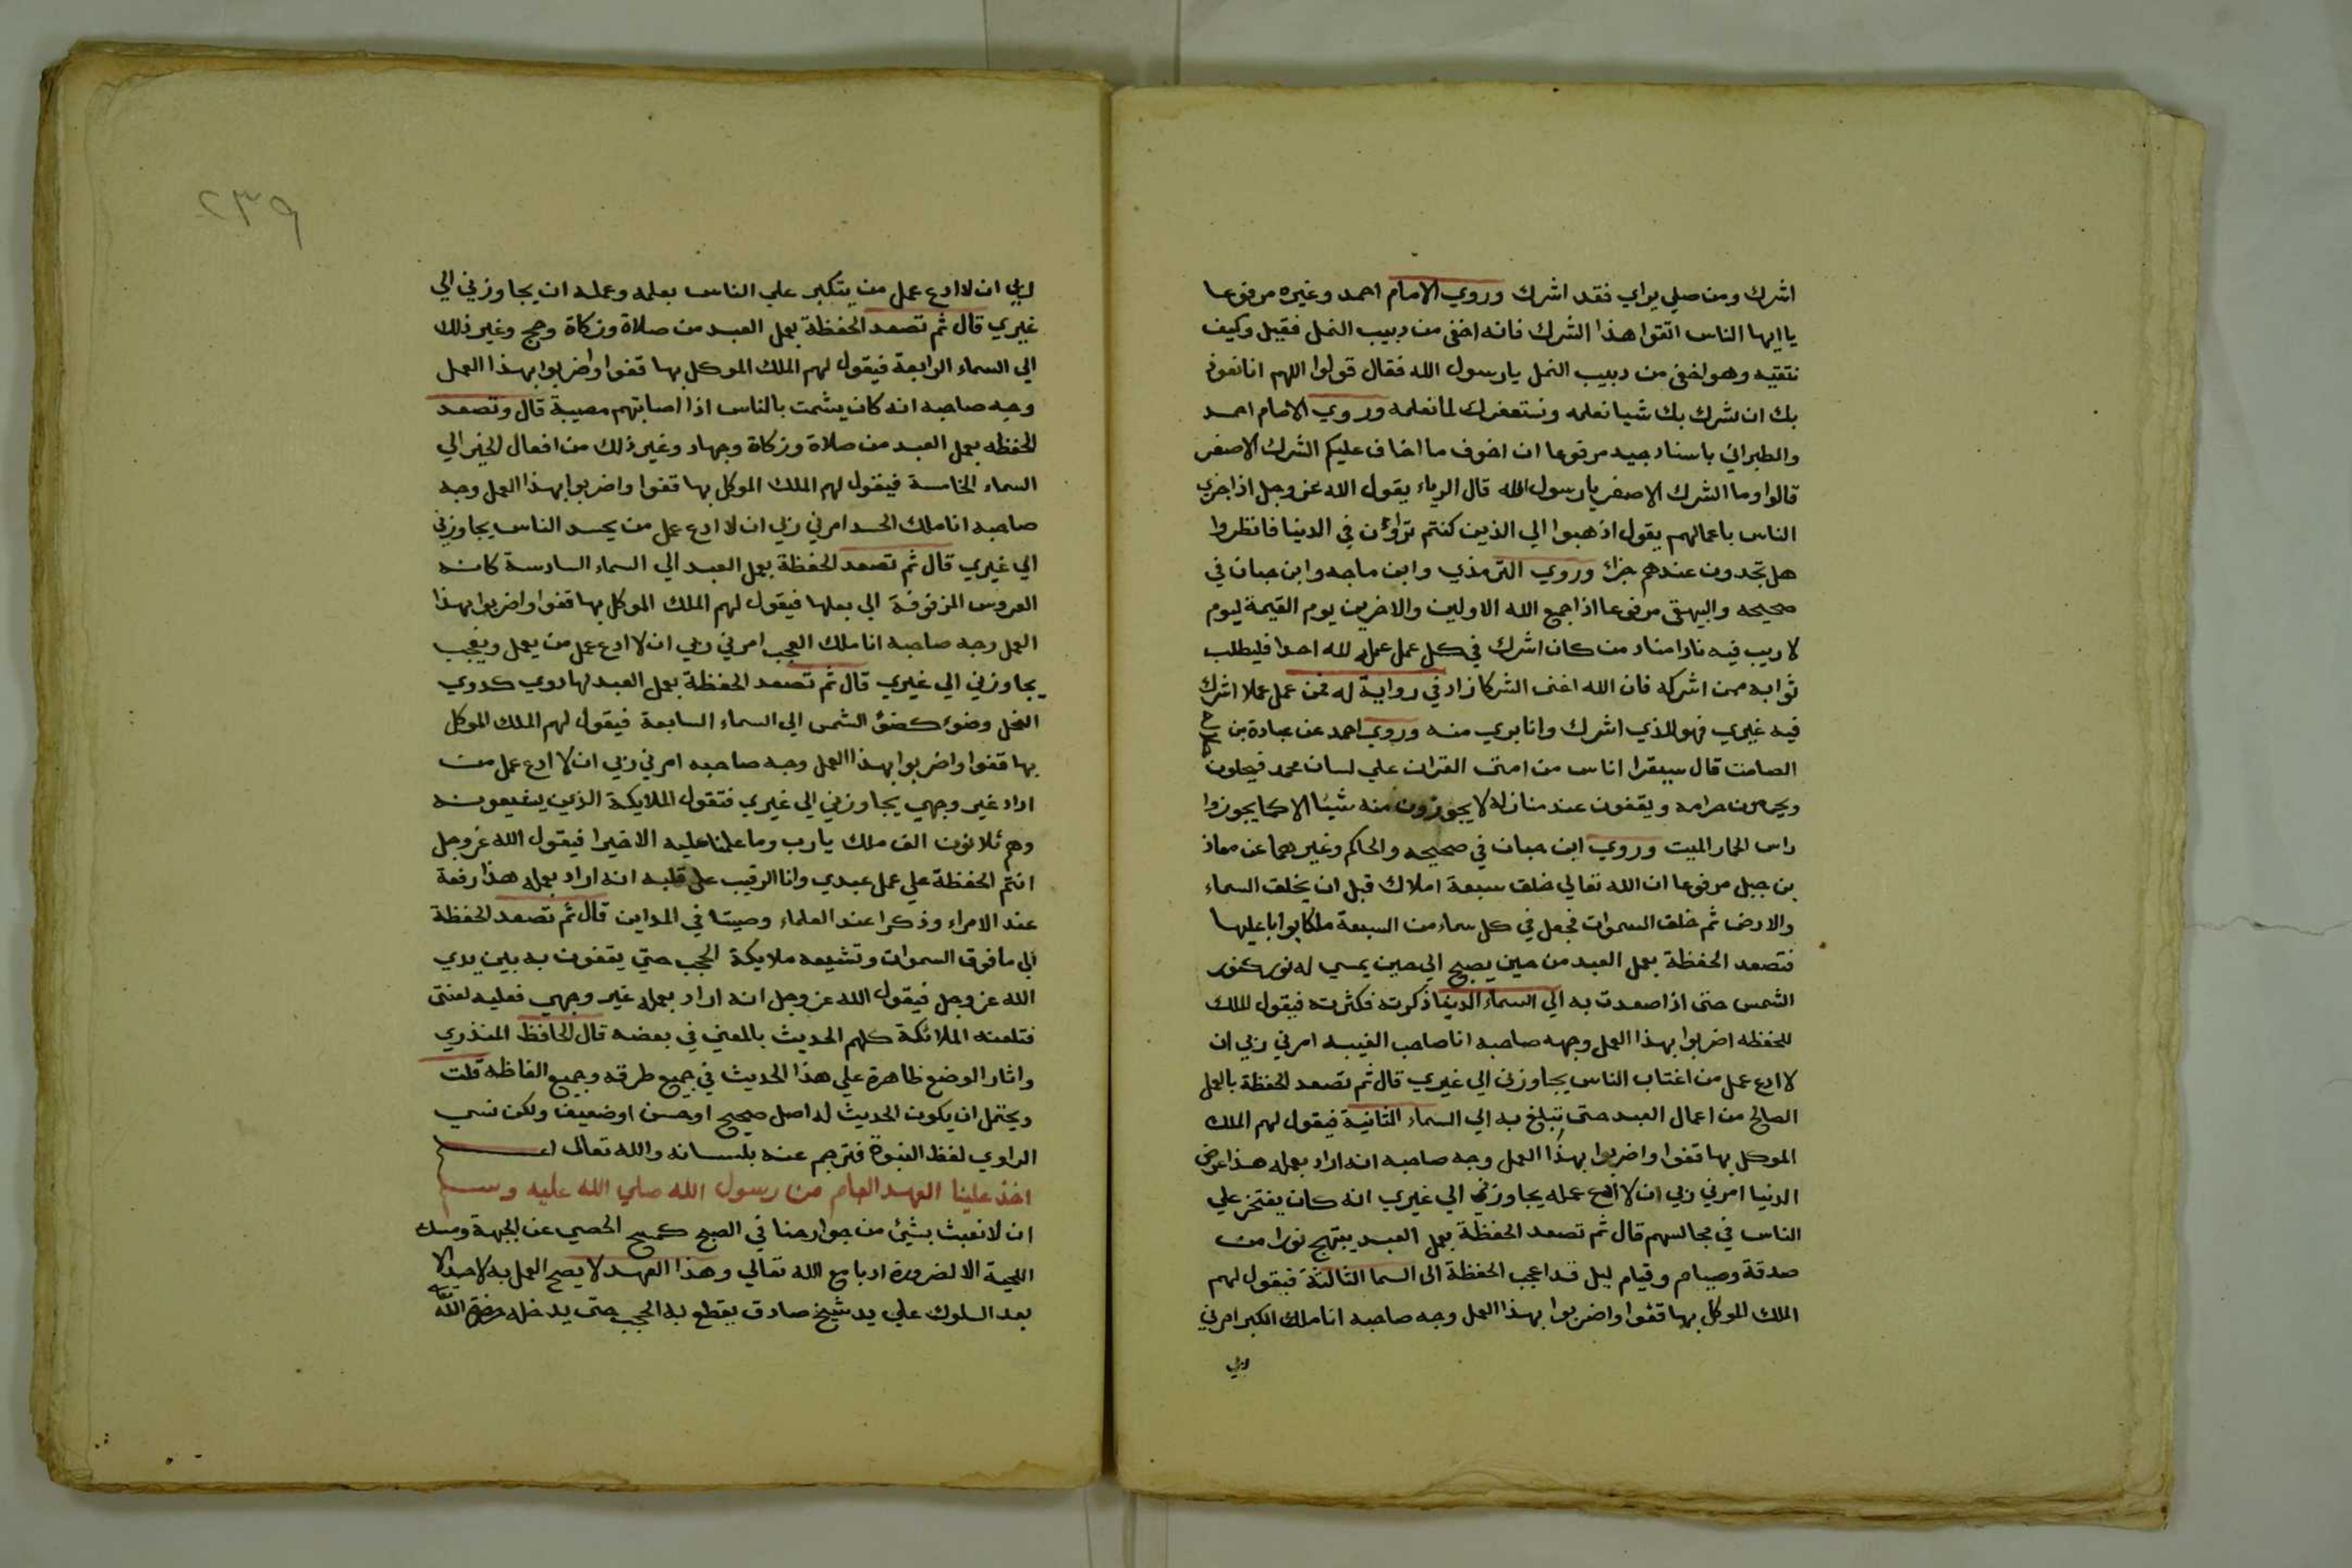 اشرك ومن صلي يراي فقد اشرك وروي الامام احمد وغيره مرفوعا
يا ايها الناس اتقوا هذا الشرك فانه اخفى من دبيب النمل فقيل وكيف
نتقيه وهو اخفى من دبيب النمل يا رسول الله فقال قولوا اللهم انا نعوذ
بك ان نشرك بك شيا نعلمه ونستغفرك لما نعلمه وروي الامام احمد
والطبراني باسناد جيد مرفوعا ان اخوف ما اخاف عليكم الشرك الاصغر
قالوا وما الشرك الاصغر يا رسول الله قال الرياء يقول الله عز وجل اذا جزي
الناس باعمالهم يقول اذهبوا الي الذين كنتم تراؤن في الدنيا فانظروا
هل تجدون عندهم جزاء وروي الترمذي وابن ماجه وابن حبان في
صحيحه والبيهقى مرفوعا اذا جمع الله الاولين والاخرين يوم القيمة ليوم
لا ريب فيه نادا مناد من كان اشرك في كل عمل عمله لله احدا فليطلب
ثوابه ممن اشركه فان الله اغنى الشركا زاد في رواية له فمن عمل عملا اشرك
فيه غيري فهو للذي اشرك وانا بري منه وروي احمد عن عبادة بن
الصامت قال سيقرا اناس من امتى القران علي لسان محمد فيحلون
ويحرمون حرامه ويقفون عند منازله لا يجوزون منه شيئا الا كما يجوزوا
راس الحمار الميت وروي ابن حبان في صحيحه والحاكم وغيرهما عن معاذ
بن جبل مرفوعا ان الله تعالي خلق سبعة املاك قبل ان يخلق السماء
والارض ثم خلق السموات فجعل في كل سماء من السبعة ملكا بوابا عليها
فتصعد الحفظة بعمل العبد من حين يصبح الي حين يمسي له نور كنور
الشمس حتى اذا صعدت به الي السماء الدنيا ذكرته فكثرته فيقول الملك
للحفظه اضربوا بهذا العمل وجهه صاحبه انا صاحب الغيبه امرني ربي ان
لا ادع عمل من اغتاب الناس يجاوزنى الي غيري قال ثم تصعد الحفظة بالعمل
الصالح من اعمال العبد حتى تبلغ به الي السماء الثانية فيقول لهم الملك
الموكل بها قفوا واضربوا بهذا العمل وجه صاحبه انه اراد بعمله هذا عوض
الدنيا امرني ربي ان لا ادع عمله يجاوزني الي غيري انه كان يفتخر علي
الناس في مجالسهم قال ثم تصعد الحفظة بعمل العبد يبتهج نورا من
صدقة وصيام وقيام ليل قد اعجب الحفظة الى السما الثالثة فيقول لهم
الملك الموكل بها قفوا واضربوا بهذا العمل وجه صاحبه انا ملك الكبر امرني
ربي
٢٣٩
ربي ان لا ادع عمل من يتكبر علي الناس بعلمه وعمله ان يجاوزني الي
غيري قال ثم تصعد الحفظة بعمل العبد من صلاة وزكاة وحج وغير ذلك
الي السماء الرابعة فيقول لهم الملك الموكل بها قفوا واضربوا بهذا العمل
وجه صاحبه انه كان يشمت بالناس اذا اصابتهم مصيبة قال وتصعد
الحفظه بعمل العبد من صلاة وزكاة وجهاد وغير ذلك من افعال الخير الي
السماء الخامسة فيقول لهم الملك الموكل بها قفوا واضربوا بهذا العمل وجه
صاحبه انا ملك الحسد امرني ربي ان لا ادع عمل من يحسد الناس يجاوزني
الي غيري قال ثم تصعد الحفظة بعمل العبد الي السماء السادسة كانه
العروس المزفوفة الي بعلها فيقول لهم الملك الموكل بها قفوا واضربوا بهذا
العمل وجه صاحبه انا ملك العجب امرني ربي ان لا ادع عمل من يعمل ويعجب
يجاوزني الي غيري قال ثم تصعد الحفظة بعمل العبد لها دوي كدوي
النحل وضوء كضؤ الشمس الي السماء السابعة فيقول لهم الملك الموكل
بها قفوا واضربوا بهذا العمل وجه صاحبه امرني ربي ان لا ادع عمل من
اراد غير وجهي يجاوزني الي غيري فتقول الملايكة الذين يشيعونه
وهم ثلاثون الف ملك يا رب وما علمنا عليه الا خيرا فيقول الله عز وجل
انتم الحفظة علي عمل عبدي وانا الرقيب علي قلبه انه اراد بعمله هذا رفعة
عند الامراء وذكرا عند العلماء وصيتا في المداين قال ثم تصعد الحفظة
الي ما فوق السموات وتشيعه ملايكة الحجب حتي يقفون به بين يدي
الله عز وجل فيقول الله عز وجل انه اراد بعمله غير وجهي فعليه لعنتى
فتلعنه الملائكة كلهم الحديث بالمعني في بعضه قال الحافظ المنذري
واثار الوضع ظاهرة علي هذا الحديث في جميع طرقه وجميع الفاظه قلت
ويحتمل ان يكون الحديث له اصل صحيح او حسن او ضعيف ولكن نسي
الراوي لفظ النبوة فترجم عنه بلسانه والله تعالى اعلم
اخذ علينا العهد العام من رسول الله صلي الله عليه وسلم
ان لا نعبث بشيئ من جوارحنا في الصبح كمسح الحصي عن الجبهة ومسك
اللحية الا لضرورة ادبا مع الله تعالي وهذا العهد لا يصح العمل به لاحد الا
بعد السلوك علي يد شيخ صادق يقطع به الحجب حتى يدخله حضرة الله